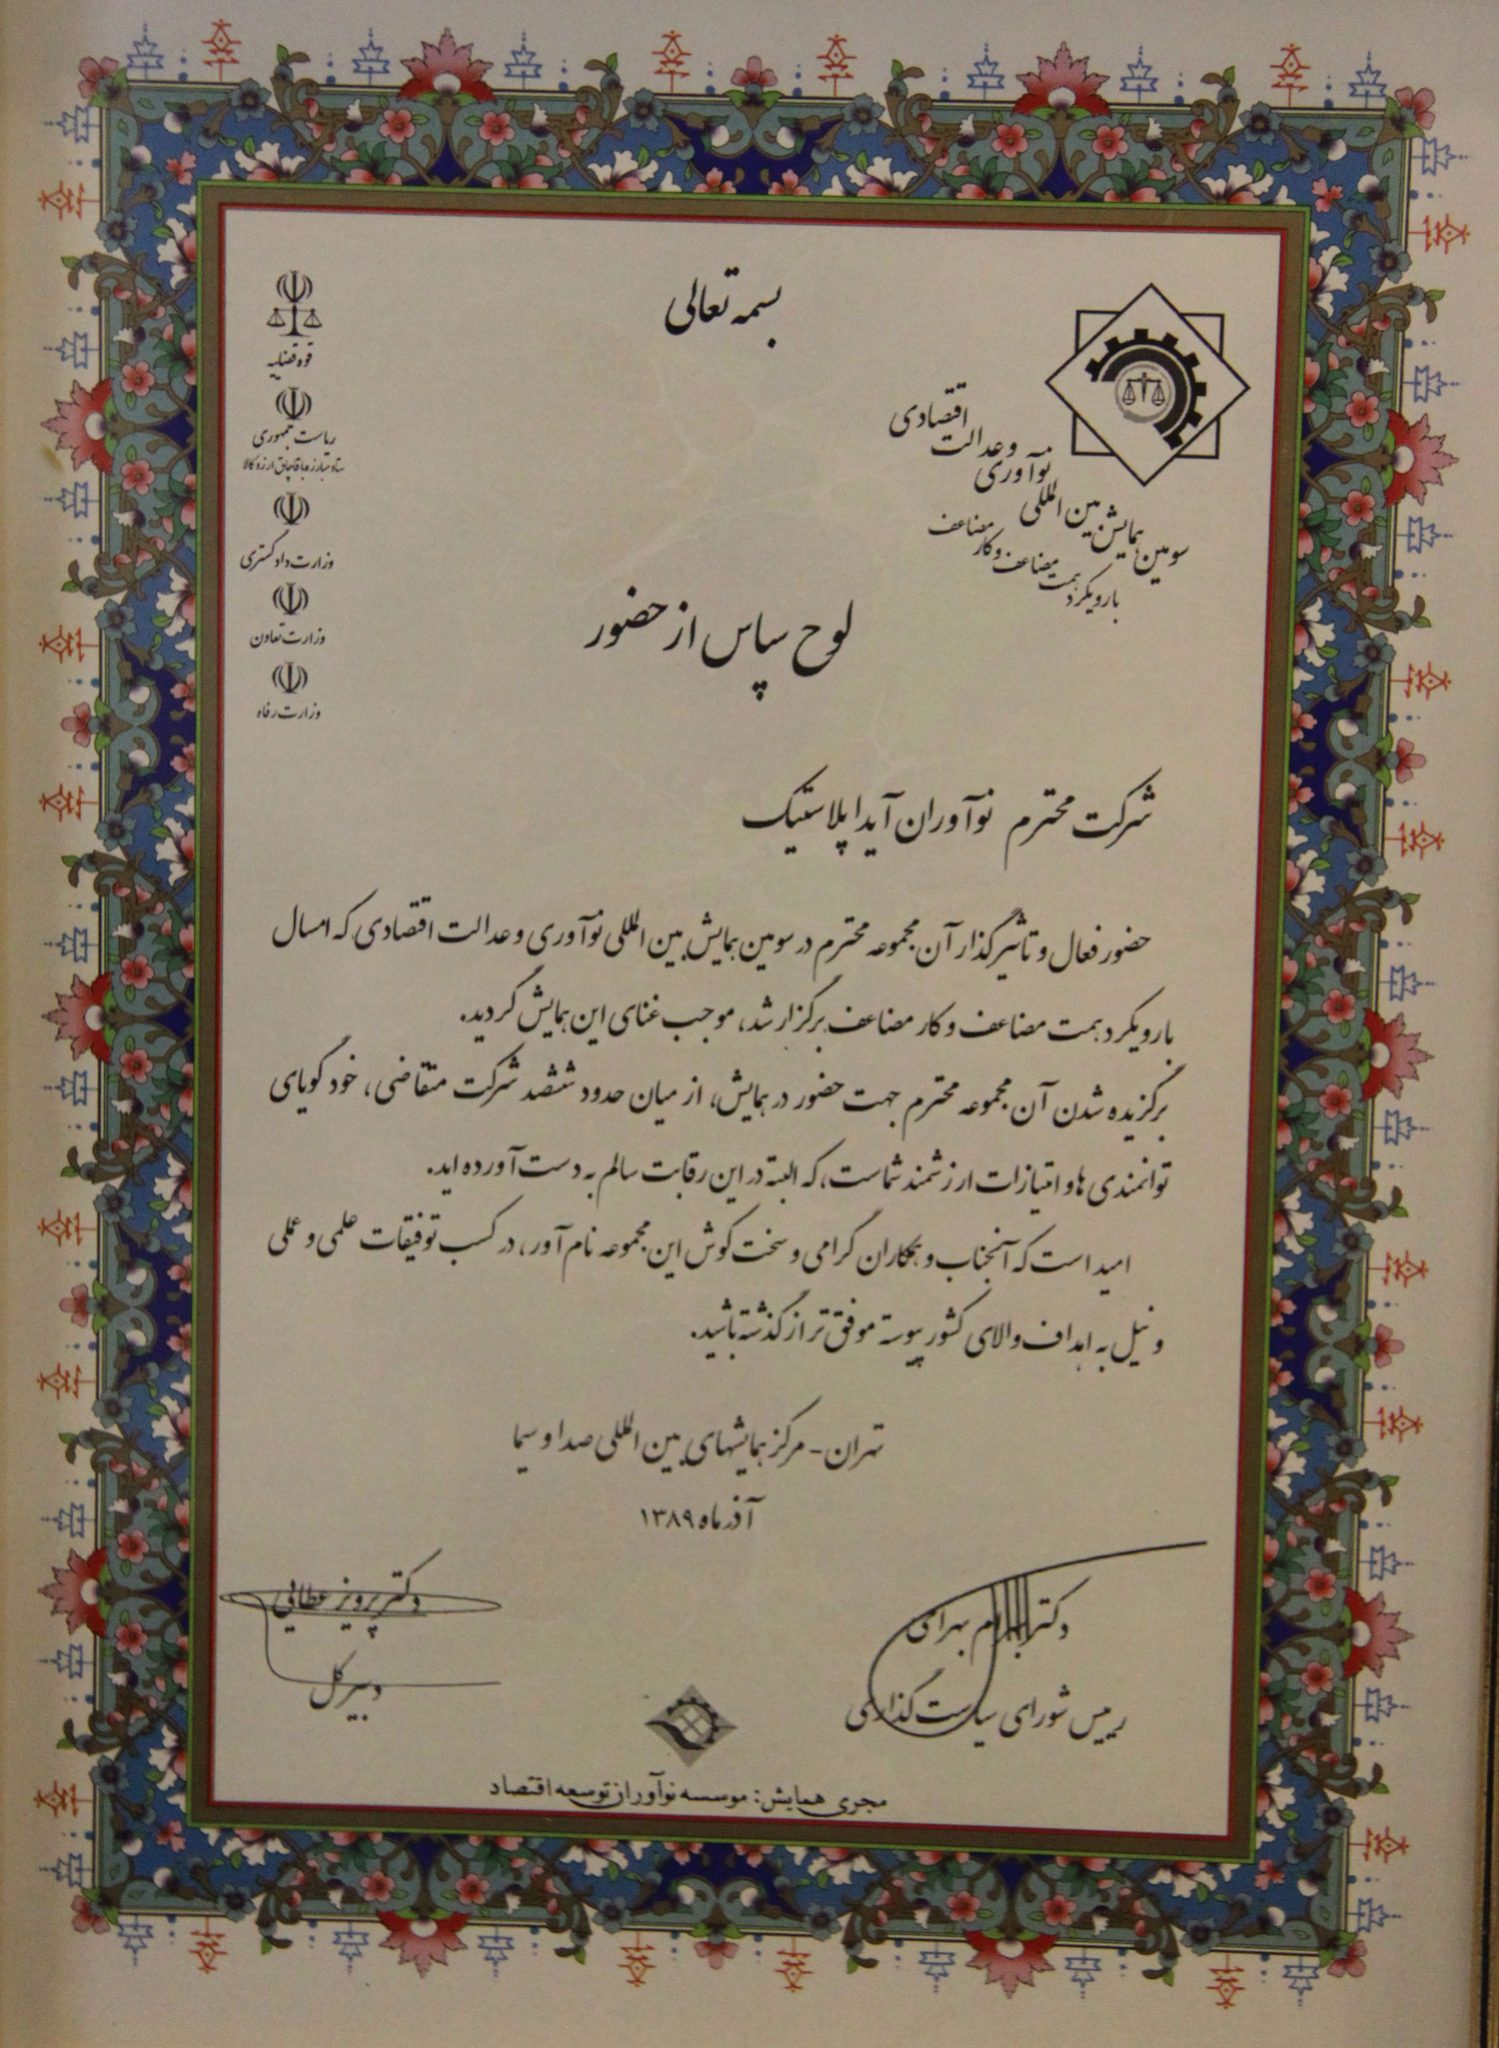 بسمه تعالی
قوه قضاییه
ریاست جمهوری
ستاد مبارزه با قاچاق ارز و کالا
وزارت دادگستری
وزارت تعاون
وزارت رفاه
سومین همایش بین المللی نوآوری و عدالت اقتصادی
با رویکرد همت مضاعف و کار مضاعف
لوح سپاس از حضور
شرکت محترم نوآوران آیدا پلاستیک
حضور فعال و تاثیرگذار آن مجموعه محترم در سومین همایش بین المللی نوآوری و عدالت اقتصادی که امسال
با رویکرد همت مضاعف و کار مضاعف برگزار شد، موجب غنای این همایش گردید.
برگزیده شدن آن مجموعه محترم جهت حضور در همایش، از میان حدود ششصد شرکت متقاضی، خود گویای
توانمندی ها و امتیازات ارزشمند شماست، که البته در این رقابت سالم به دست آورده اید.
امید است که آنجناب و همکاران گرامی و سخت کوش این مجموعه نام آور، در کسب توفیقات علمی و عملی
و نیل به اهداف والای کشور پیوسته موفق تر از گذشته باشید.
تهران - مرکز همایشهای بین المللی صدا و سیما
آذر ماه ۱۳۸۹
دکتر بهرام بهرامی
رییس شورای سیاست گذاری
دکتر پرویز عطائی
دبیر کل
مجری همایش: موسسه نوآوران توسعه اقتصاد